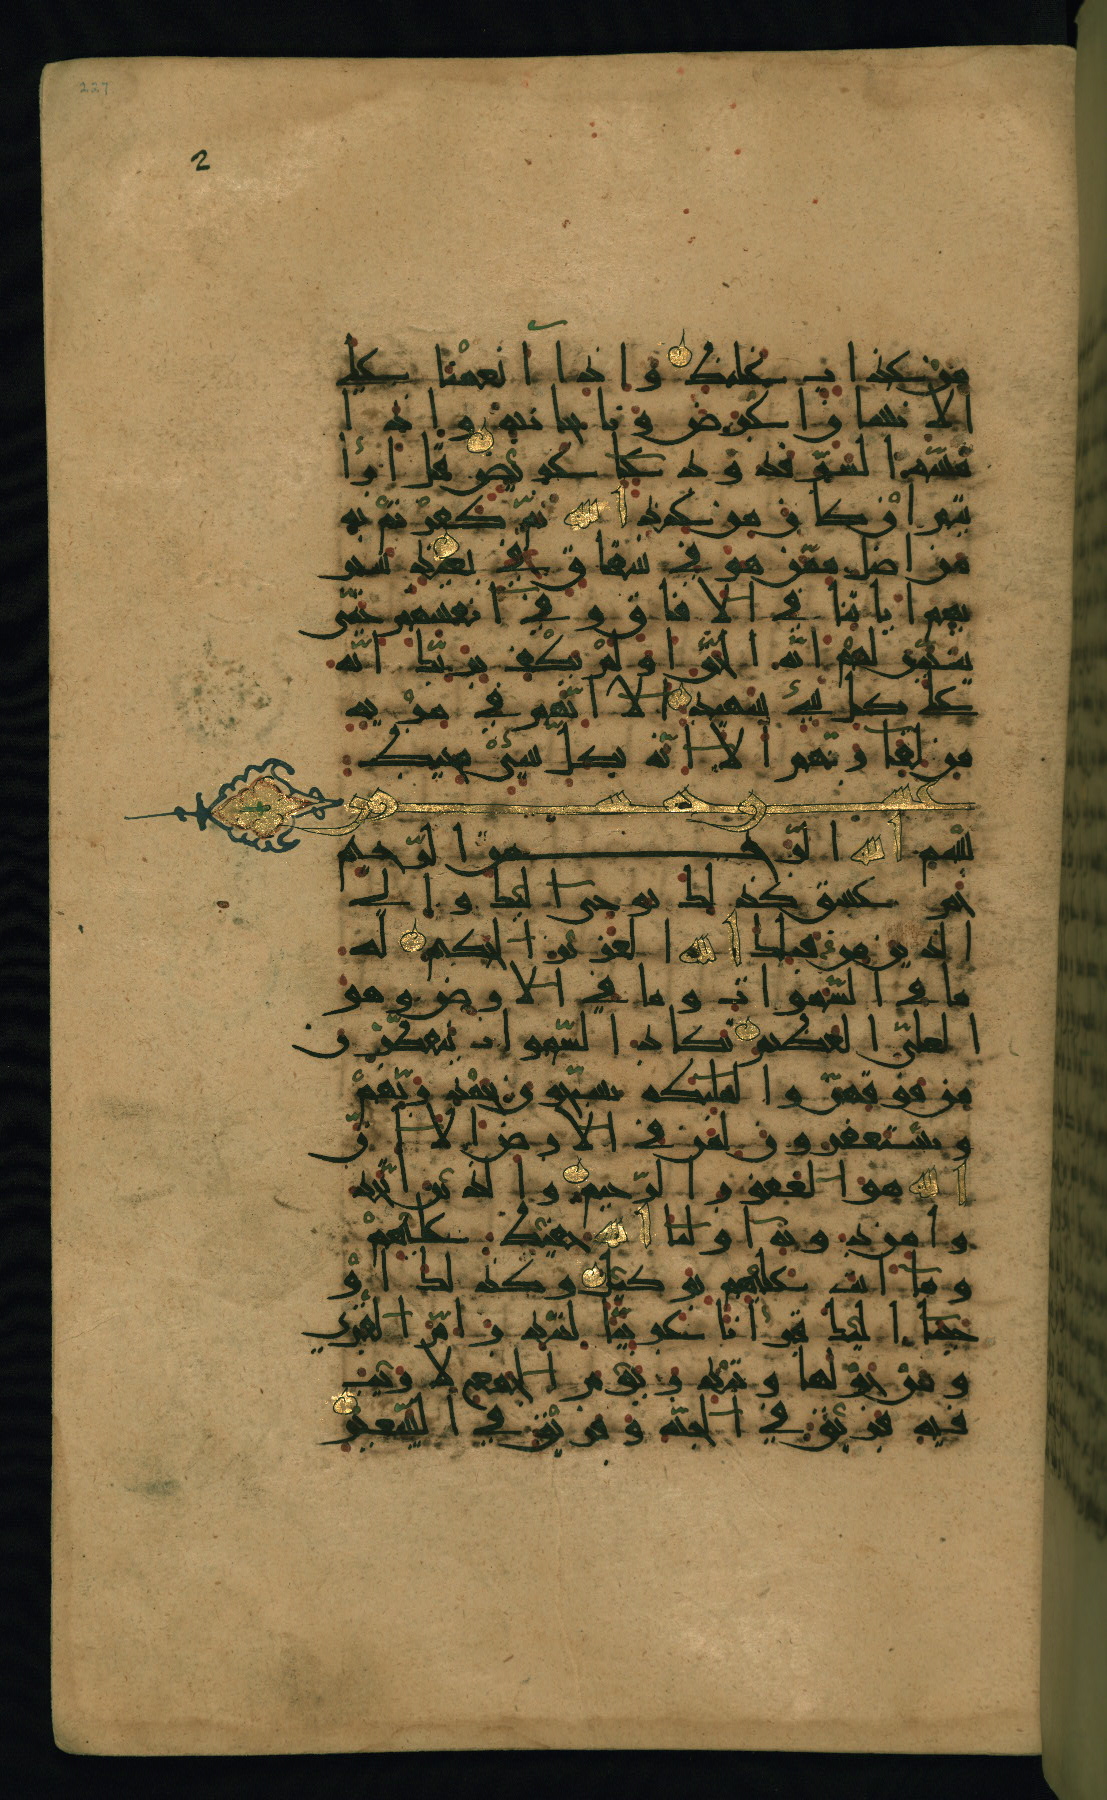 227
2
من عذاب غليظ واذا انعمنا على
الانسان اعرض ونا بجانبه واذا
مسّه الشرّ فذو دعا عريض قل ارا
يتم ان كان من عند الله ثمّ كفرتم به
من اضل ممّن هو في شقاق بعيد سنر
يهم اياتنا في الافاق وفي انفسهم حتّى
يتبيّن لهم انّه الحقّ اولم يكف بربّك انّه
على كل شئ شهيد الا انّهم في مرية
من لقا ربّهم الا انّه بكلّ شئ محيط
بسم الله الرّحمن الرّحيم
حم عسق كذلك يوحي اليك والى
الذين من قبلك الله العزيز الحكيم له
ما في السّموات وما في الارض وهو
العليّ العظيم تكاد السّموات يتفطّرن
من فوقهنّ والملئكة يسبّحون بحمد ربّهم
ويستغفرون لمن في الارض الا انّ
الله هو الغفور الرّحيم والذين اتّخذ
وا من دونه اوليا الله حفيظ عليهم
وما انت عليهم بوكيل وكذلك او
حينا اليك قرانا عربيّا لتنذر امّ القرى
ومن حولها وتنذر يوم الجمع لا ريب
فيه فريق في الجنّة وفريق في السّعير